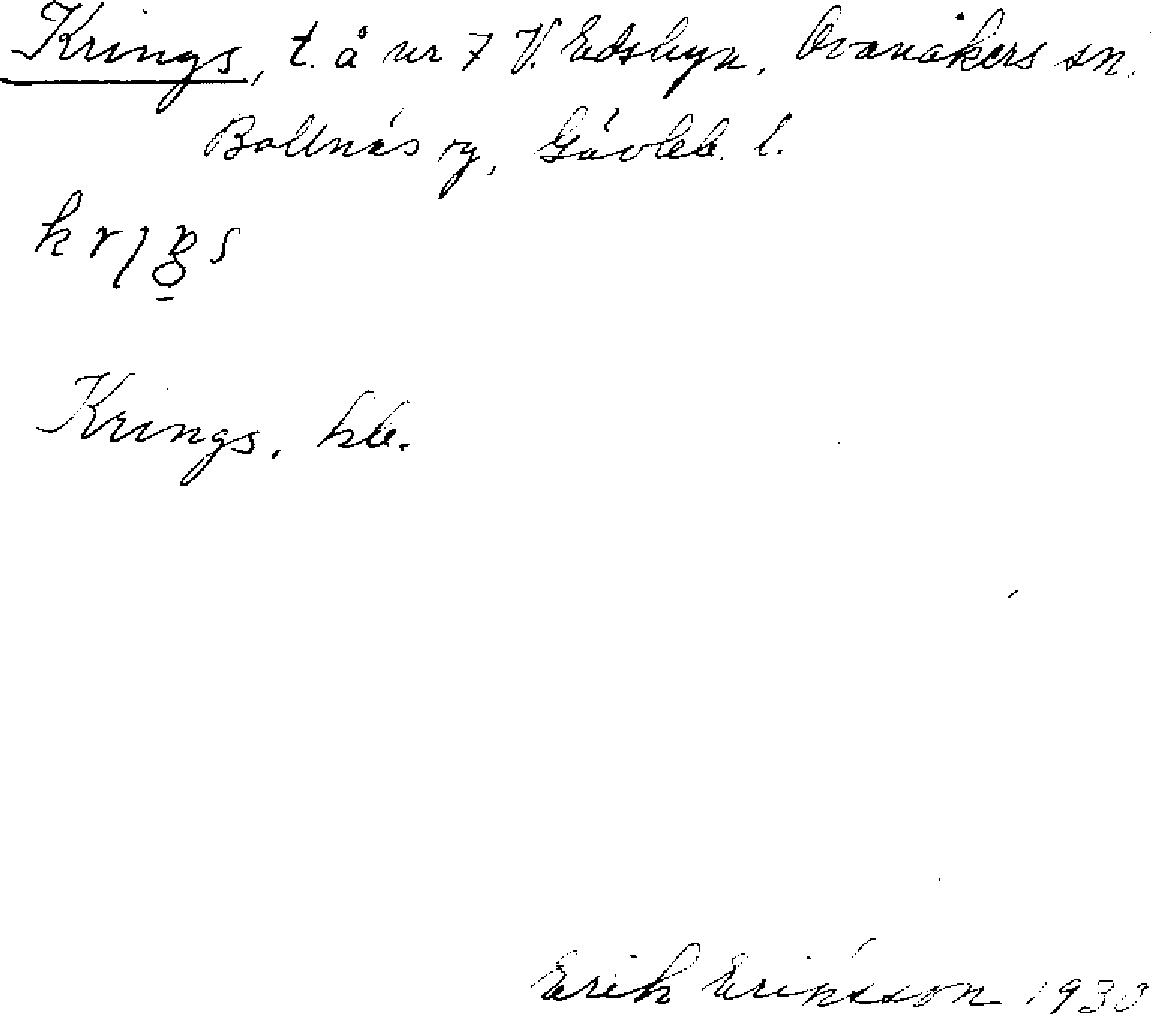 Krings, t. å nr 7 V. Edsbyn, Ovanåkers sn.
Bollnäs fg, Gävleb. l.
Krings, hb.
Erik Eriksson 1930